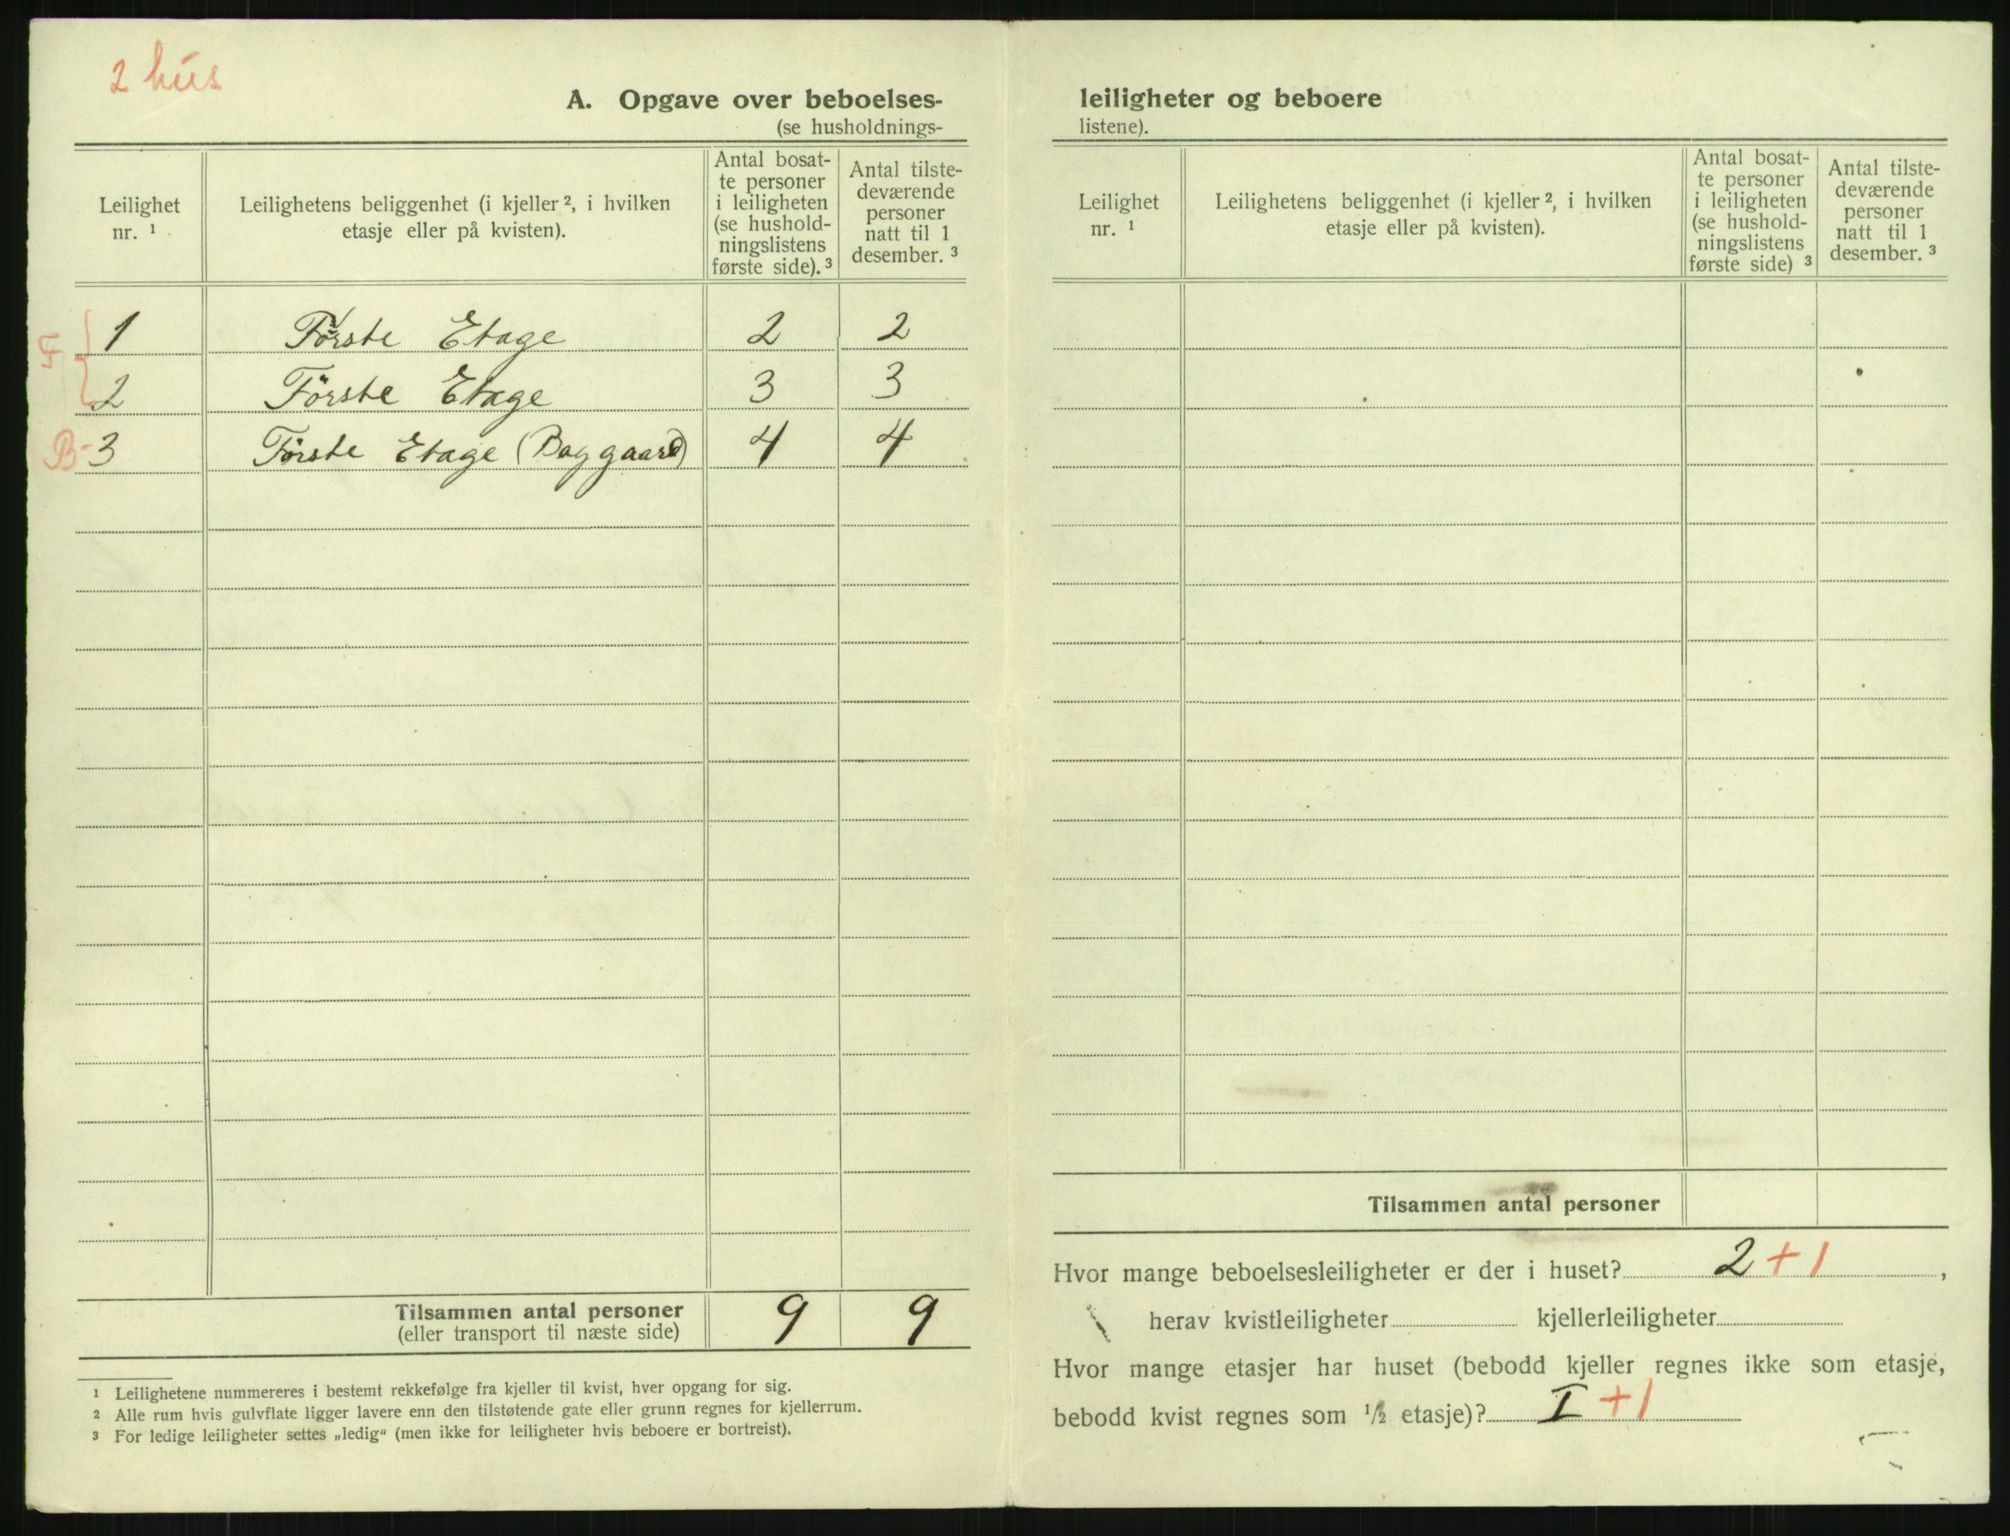 2 hus
A. Opgave over beboelses-
(se husholdnings-
Leilighet nr. 1
Leilighetens beliggenhet (i kjeller 2, i hvilken etasje eller på kvisten).
Antal bosat-
te personer
i leiligheten
(se hushold-
ningslistens
første side). 3
Antal tilste-
deværende
personer
natt til 1
desember. 3
F 1 Første Etage 2 2
2 Förste Etage 3 3
B- 3 Första Etage (Baggaard) 4 4
Tilsammen antal personer 9 9
(eller transport til næste side)
1 Leilighetene nummereres i bestemt rekkefølge fra kjeller til kvist, hver opgang for sig.
2 Alle rum hvis gulvflate ligger lavere enn den tilstøtende gate eller grunn regnes for kjellerrum.
3 For ledige leiligheter settes „ledig“ (men ikke for leiligheter hvis beboere er bortreist).
leiligheter og beboere
listene).
Leilighet nr. 1
Leilighetens beliggenhet (i kjeller 2, i hvilken etasje eller på kvisten).
Antal bosat-
te personer
i leiligheten
(se hushold-
ningslistens
første side) 3
Antal tilste-
deværende
personer
natt til 1
desember. 3
Tilsammen antal personer
Hvor mange beboelsesleiligheter er der i huset? 2 + 1 ,
herav kvistleiligheter kjellerleiligheter
Hvor mange etasjer har huset (bebodd kjeller regnes ikke som etasje,
bebodd kvist regnes som 1/2 etasje)? I + 1